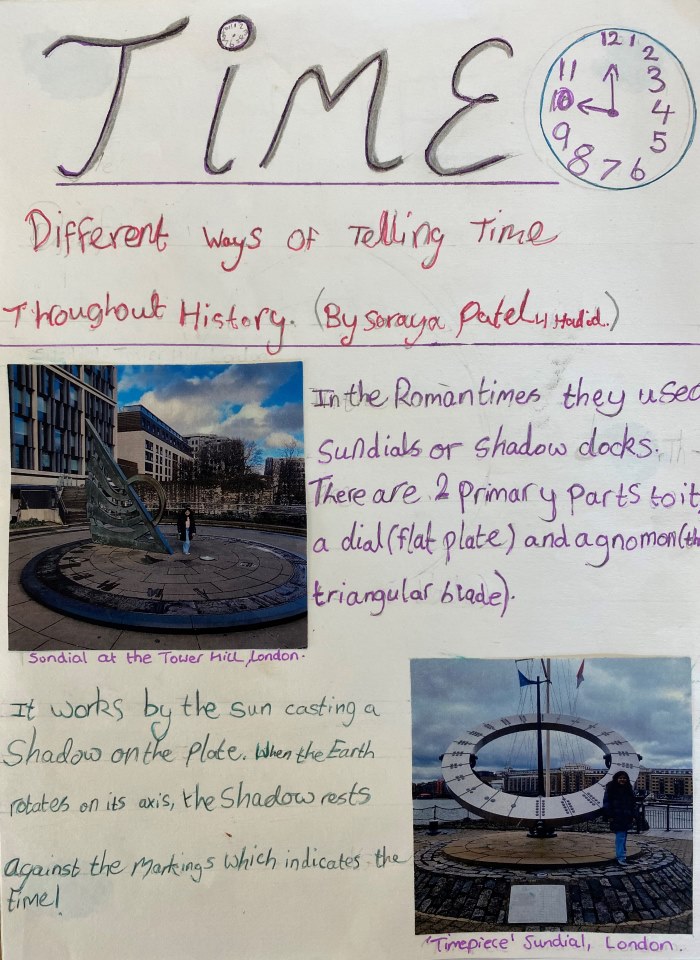 TIME
12 1
2
11
3
10
4
9
5
8 7 6
Different Ways of Telling Time
Throughout History. (By Soraya Patel 4 Hadid.)
In the Roman times they used
sundials or shadow clocks.
There are 2 primary parts to it,
a dial (flat plate) and a gnomon (th
triangular blade).
Sundial at the Tower Hill, London.
It works by the sun casting a
Shadow on the plate. When the Earth
rotates on its axis, the Shadow rests
against the markings which indicates the
time!
'Timepiece' Sundial, London.